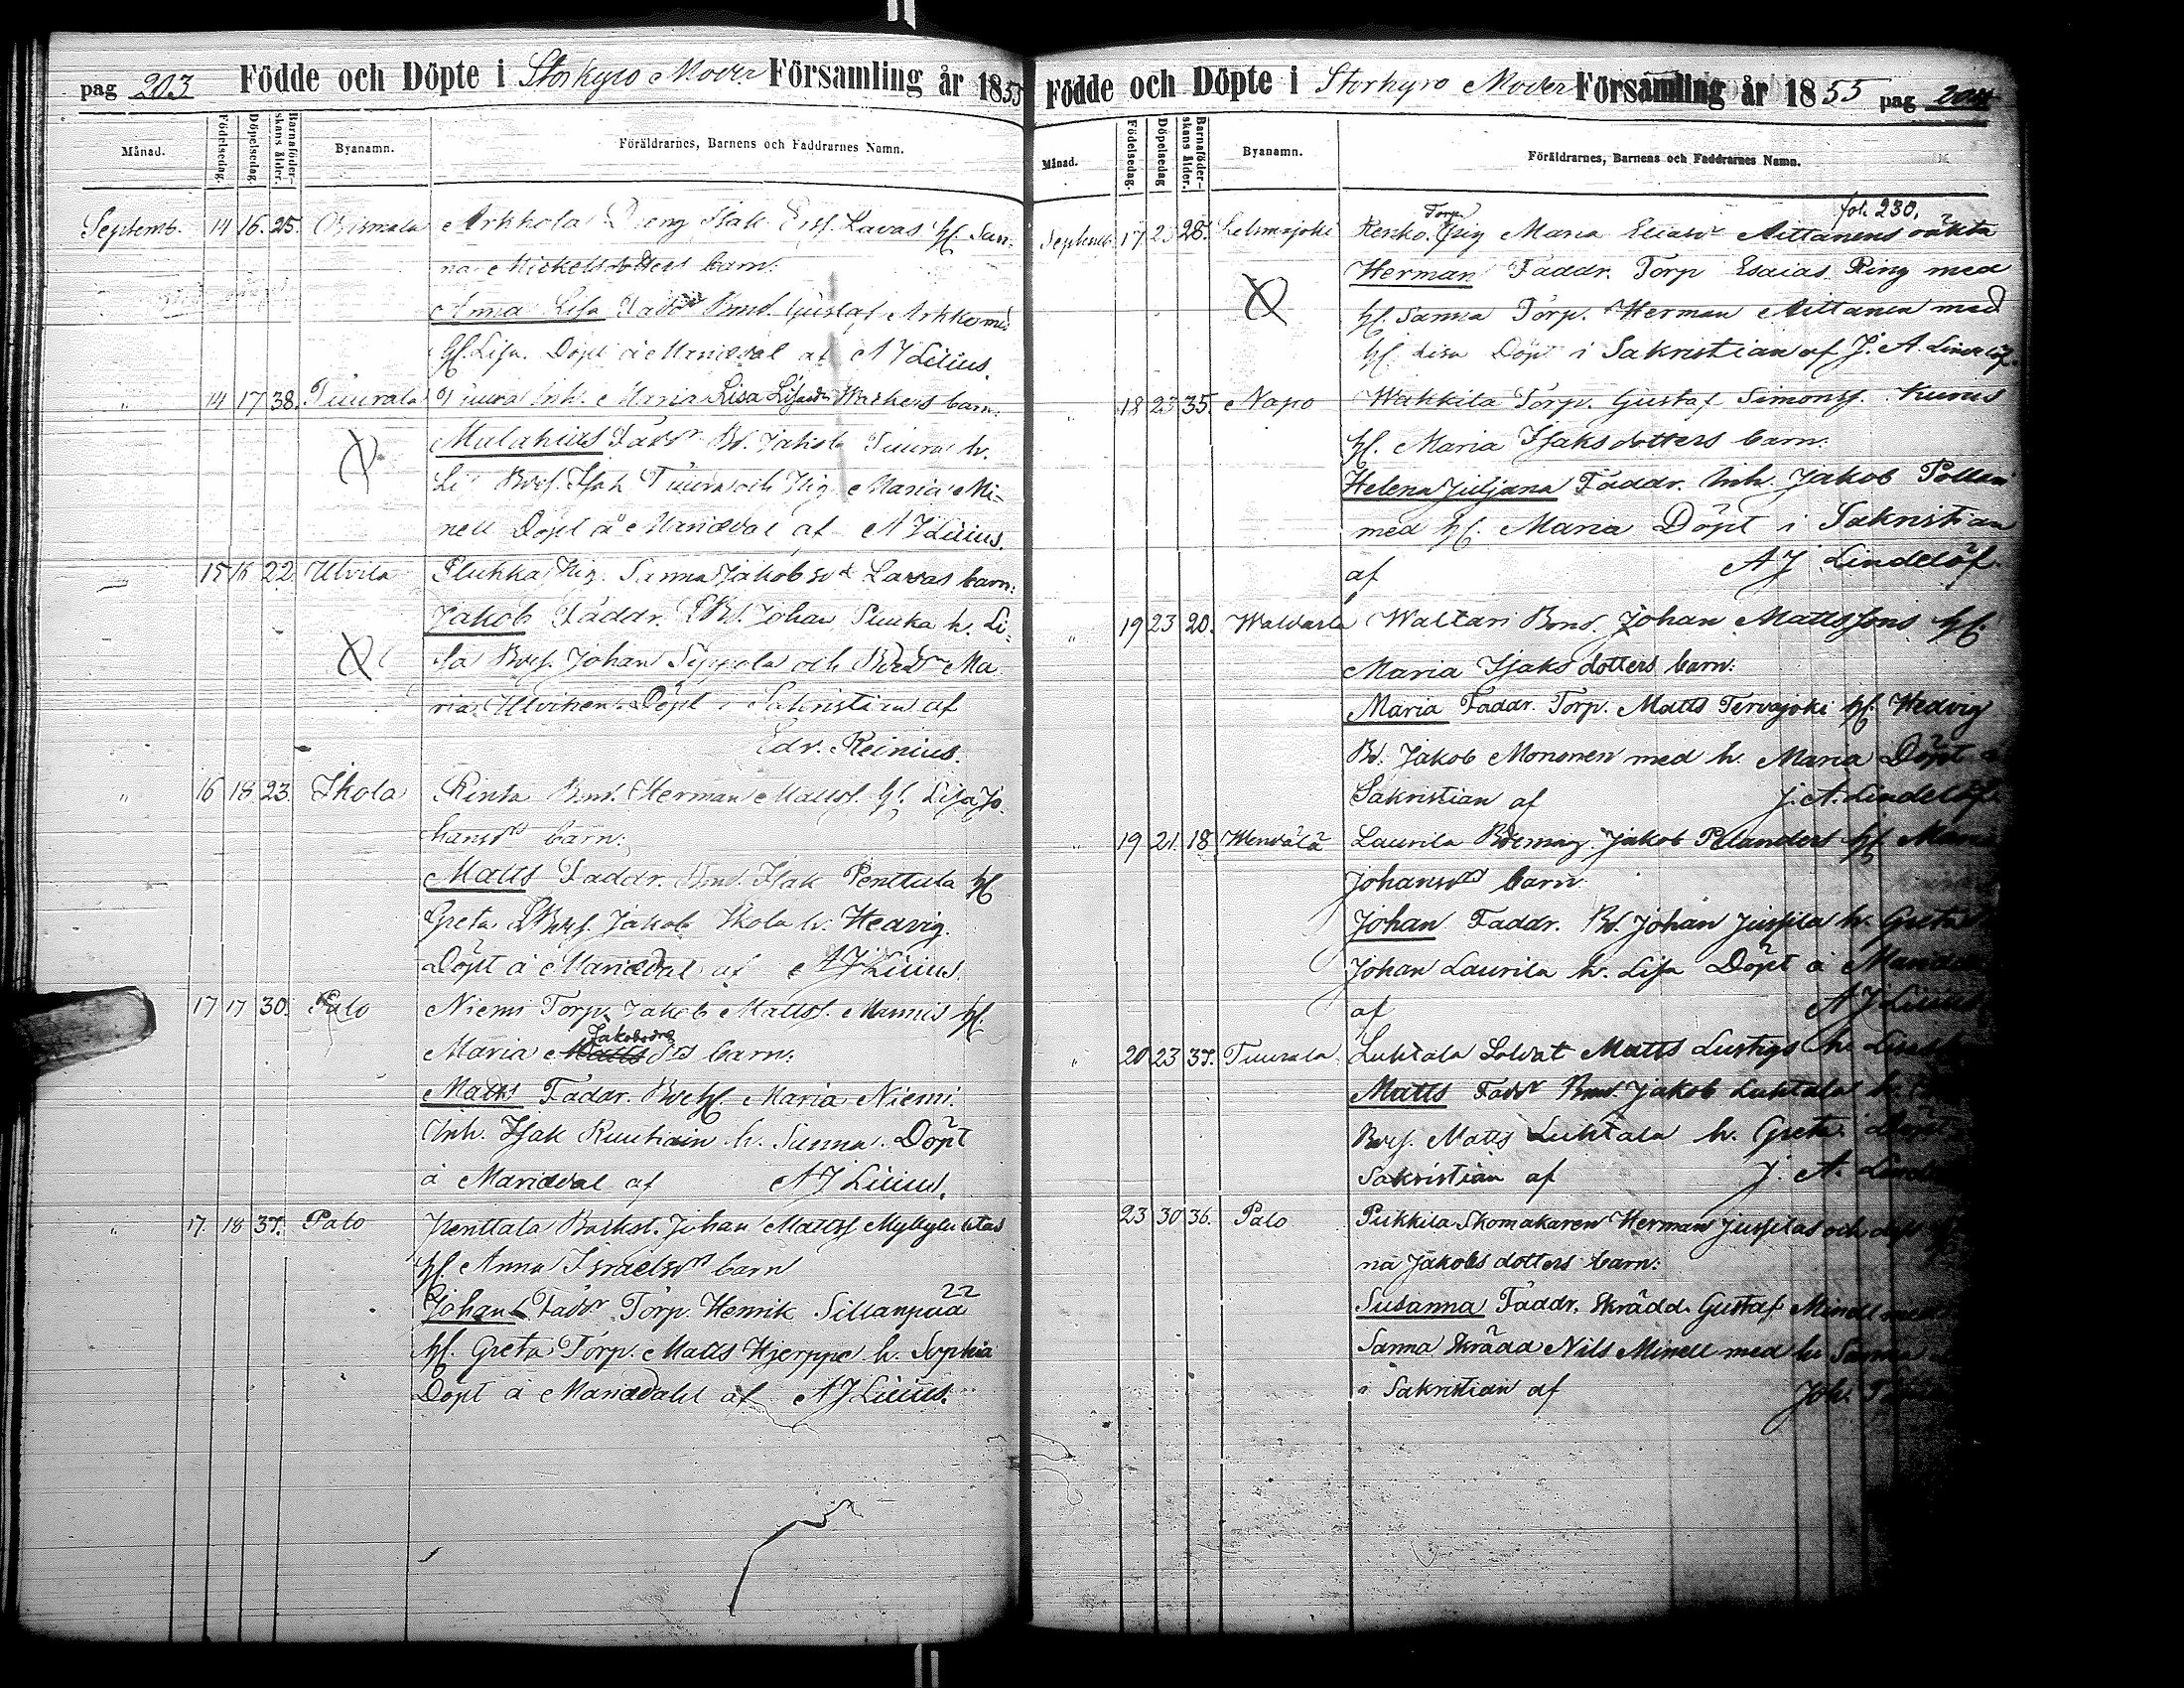 pag 203 Födde och Döpte i Storkyro Moder Församling år 1855
Månad. Födelsedag. Döpelsedag. Barnaföderskans ålder. Byanamn. Föräldrarnes, Barnens och Faddrarnes Namn.
Septemb. 14 16. 25. Orismala Arkkola Dreng Isak Ersf. Lavas hf. San-
na Mickelsdotters barn.
Anna Lisa Faddr Bond. Gustaf Arkko md
hf. Lisa. Döpt å Mariedal af A J Lilius.
" 14 17 38. Tuurala Tuura Inh. Maria Lisa Barn.
Malakias Faddr Bd. Jakob Tuura h.
Li Bdsf. Isak Tuura och Pig. Maria Mi-
nell Döpt å Mariedal af A J Lilius.
" 15 16 22 Ulvila Plukka Pig. Sanna Jakobsdr Lavas barn:
Jakob Faddr. Bd. Johan h. Li-
sa Bdsf. Johan Seppela och Bdr Ma
ria Ulvinen. Döpt i Sakristian af
Edv. Reinius.
" 16 18 23. Ikola Rinta Bond. Herman Mattsf. hf. Lisa Jo
hansdrs barn:
Matts Faddr. Bond. Isak Penttala hf
Greta Bdsf. Jakob Ikola h. Hedvig.
Döpt å Mariedal af A J Lilius.
17 17 30. Palo Niemi Torp. Jakob Mattsf. Mannis hf.
Jakobsdrs
Maria Matts drs barn:
Matts Faddr. Bdehf. Maria Niemi.
Inh. Isak h. Sanna. Döpt
å Mariedal af A J Lilius.
" 17. 18 37. Palo Penttala Backst. Johan Mattsf Myllyluhtas
hf. Anna Israelsdrs barn
Johan Faddr Torp. Henrik Sillanpää
hf. Greta Torp. Matts Hjerppe h. Sophia
Döpt å Mariedahl af A J Lilius.
Födde och Döpte i Storkyro Moder Församling år 1855 pag 204
Månad. Födelsedag. Döpelsedag Barnaföderskans ålder. Byanamn. Föräldrarnes, Barnens och Faddrarnes Namn.
Torp. fol. 230.
Septemb. 17 23 28. Lehmajoki Renko. Pig Maria Eliasdr Aittanens oäkta
Herman Faddr. Torp Esaias Ring med
hf. Sanna Torp. Herman Aittanen med
hf. Lisa Döpt i Sakristian af J. A. Lindelöf.
" 18 23 35. Napo Wakkila Torp. Gustaf Simonsf. Kurus
hf. Maria Isaksdotters barn:
Helena Juljana Faddr. Inh. Jakob Pollari
med hf. Maria Döpt i Sakristian
af A J Lindelöf.
" 19 23 20. Waldarla Waltari Bond. Johan Mattssons hf
Maria Isaksdotters barn:
Maria Faddr. Torp. Matts Tervajoki hf. Hedvig
Bd. Jakob Mononen med h. Maria Döpt i
Sakristian af J. A. Lindelöf
" 19 21. 18 Mervälä Laurila Bdemåg. Jakob Pelanders hf Maria
Johansdrs barn
Johan Faddr. Bd. Johan Jussila h. Greta
Johan Laurila h. Lisa Döpt å Mariedal
af A J Lilius
" 20 23 37. Tuurala. Luhtala Soldat Matts Lustigs h.
Matts Faddr Bond. Jakob Luhtala h.
Bdsf. Matts Luhtala h. Greta
Sakristian af J. A.
23 30 36. Palo Pukkila Skomakaren Herman Jussilas och
na Jakobsdotters barn:
Susanna Faddr. Skrädd. Gustaf Minell med
Sanna Skrädd Nils Minell med h. Sanna
i Sakristian af Joh.